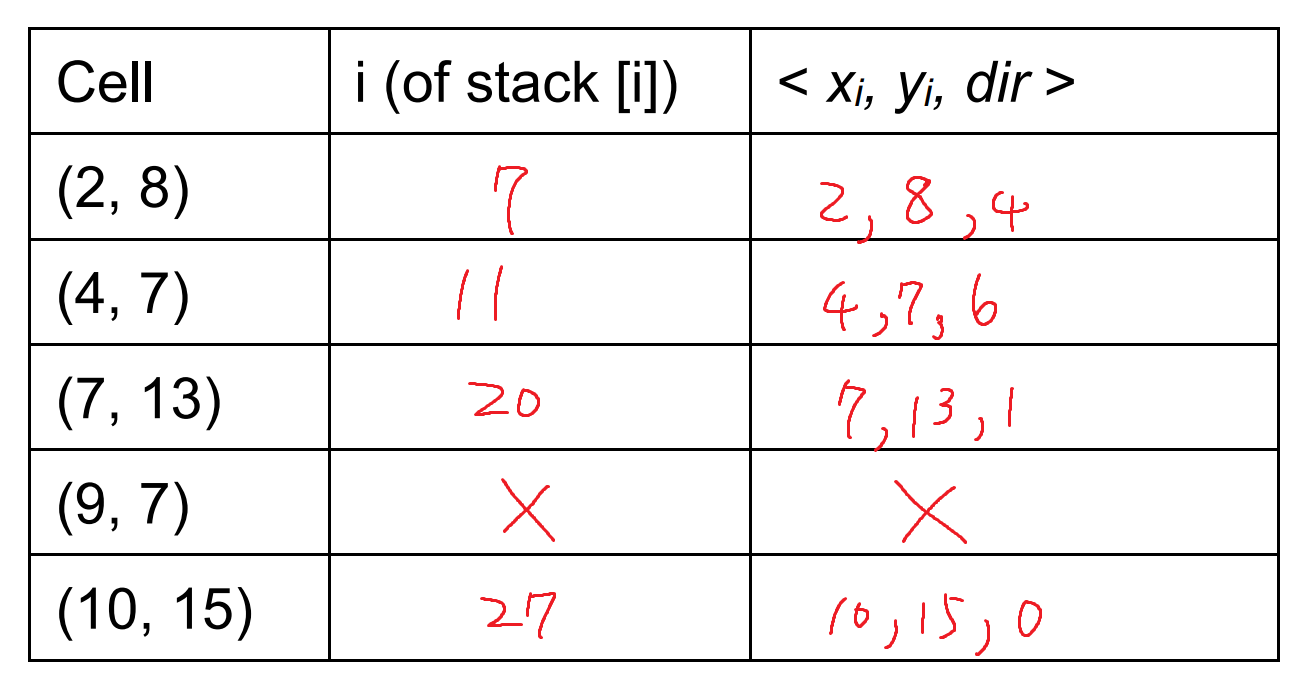 Cell i (of stack [i]) < xi, yi, dir >
(2, 8) 7 2, 8, 4
(4, 7) 11 4, 7, 6
(7, 13) 20 7, 13, 1
(9, 7) X X
(10, 15) 27 10, 15, 0